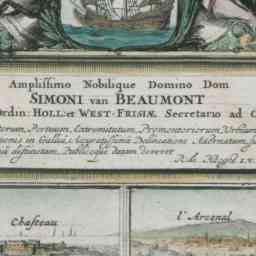 Amplissimo Nobilique Domino Dom
SIMONI van BEAUMONT
Ordin: HOLL. et WEST-FRISIÆ Secretario ad C
Portuum, Extremitatum, Promontoriorum, Urbium
in Gallia, Accuratissima Delineatione Adornatum
destinatum, Publicoque datum devovet
R. de Hooghe
Chasteau
l'Arcenal